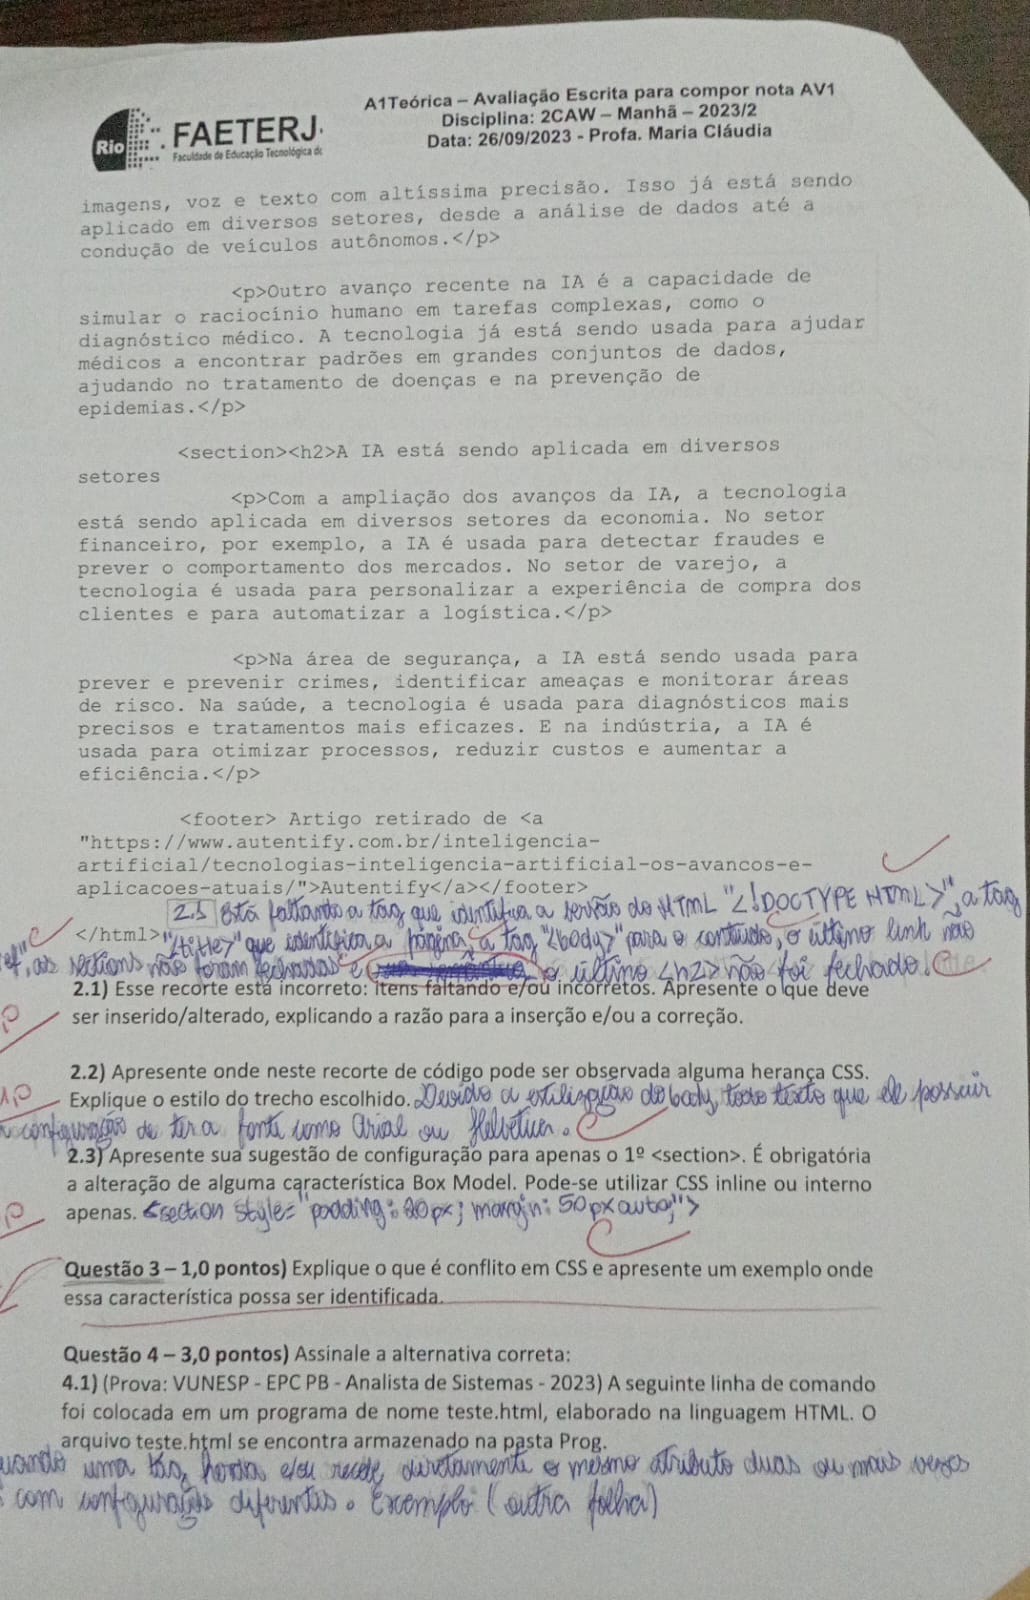 A1Teórica – Avaliação Escrita para compor nota AV1
Disciplina: 2CAW – Manhã – 2023/2
Data: 26/09/2023 - Profa. Maria Cláudia
Rio
FAETERJ
Faculdade de Educação Tecnológica do
imagens, voz e texto com altíssima precisão. Isso já está sendo
aplicado em diversos setores, desde a análise de dados até a
condução de veículos autônomos.</p>
<p>Outro avanço recente na IA é a capacidade de
simular o raciocínio humano em tarefas complexas, como o
diagnóstico médico. A tecnologia já está sendo usada para ajudar
médicos a encontrar padrões em grandes conjuntos de dados,
ajudando no tratamento de doenças e na prevenção de
epidemias.</p>
<section><h2>A IA está sendo aplicada em diversos
setores
<p>Com a ampliação dos avanços da IA, a tecnologia
está sendo aplicada em diversos setores da economia. No setor
financeiro, por exemplo, a IA é usada para detectar fraudes e
prever o comportamento dos mercados. No setor de varejo, a
tecnologia é usada para personalizar a experiência de compra dos
clientes e para automatizar a logística.</p>
<p>Na área de segurança, a IA está sendo usada para
prever e prevenir crimes, identificar ameaças e monitorar áreas
de risco. Na saúde, a tecnologia é usada para diagnósticos mais
precisos e tratamentos mais eficazes. E na indústria, a IA é
usada para otimizar processos, reduzir custos e aumentar a
eficiência.</p>
<footer> Artigo retirado de <a
"https://www.autentify.com.br/inteligencia-
artificial/tecnologias-inteligencia-artificial-os-avancos-e-
aplicacoes-atuais/">Autentify</a></footer>
2.1 Está faltando a tag que identifica a versão do HTML "<!DOCTYPE HTML>", a tag
</html> "<title>" que identifica a página, a tag "<body>" para o conteúdo, o último link não
ref", as sections não foram fechadas e o último <h2> não foi fechado.
2.1) Esse recorte está incorreto: itens faltando e/ou incorretos. Apresente o que deve
ser inserido/alterado, explicando a razão para a inserção e/ou a correção.
2.2) Apresente onde neste recorte de código pode ser observada alguma herança CSS.
1,0 Explique o estilo do trecho escolhido. Devido a estilização do body, todo texto que ele possuir
configuração de ter a fonte como Arial ou Helvetica.
2.3) Apresente sua sugestão de configuração para apenas o 1º <section>. É obrigatória
a alteração de alguma característica Box Model. Pode-se utilizar CSS inline ou interno
apenas. <section style="padding: 20px; margin: 50px auto;">
Questão 3 – 1,0 pontos) Explique o que é conflito em CSS e apresente um exemplo onde
essa característica possa ser identificada.
Questão 4 – 3,0 pontos) Assinale a alternativa correta:
4.1) (Prova: VUNESP - EPC PB - Analista de Sistemas - 2023) A seguinte linha de comando
foi colocada em um programa de nome teste.html, elaborado na linguagem HTML. O
arquivo teste.html se encontra armazenado na pasta Prog.
uando uma tag, herda e/ou recebe diretamente o mesmo atributo duas ou mais vezes
com configurações diferentes. Exemplo (outra folha)